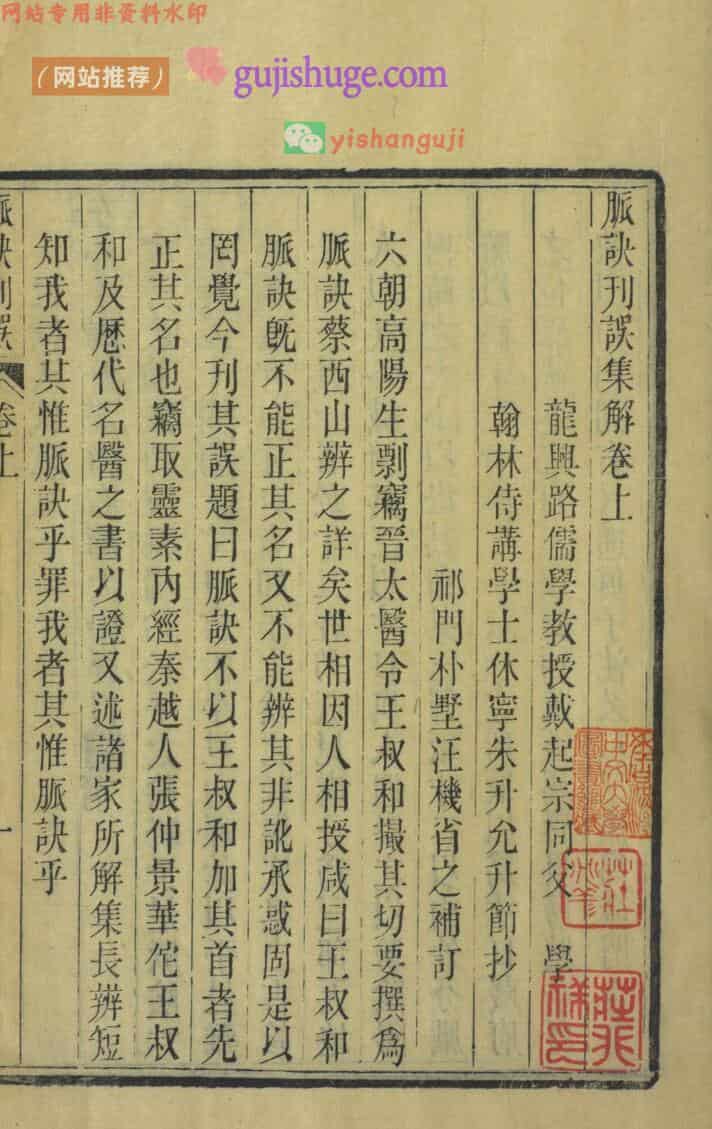 网站专用非资料水印
（网站推荐）
gujishuge.com
yishanguji
脈訣刊誤集解卷上
龍興路儒學教授戴起宗同父　學
翰林侍講學士休寧朱升允升節抄
祁門朴墅汪機省之補訂
六朝高陽生剽竊晉太醫令王叔和撮其切要撰爲
脈訣蔡西山辨之詳矣世相因人相授咸曰王叔和
脈訣旣不能正其名又不能辨其非訛承惑固是以
罔覺今刊其誤題曰脈訣不以王叔和加其首者先
正其名也竊取靈素內經秦越人張仲景華佗王叔
和及歷代名醫之書以證又述諸家所解集長辨短
知我者其惟脈訣乎罪我者其惟脈訣乎
脈訣刊誤　卷上　一